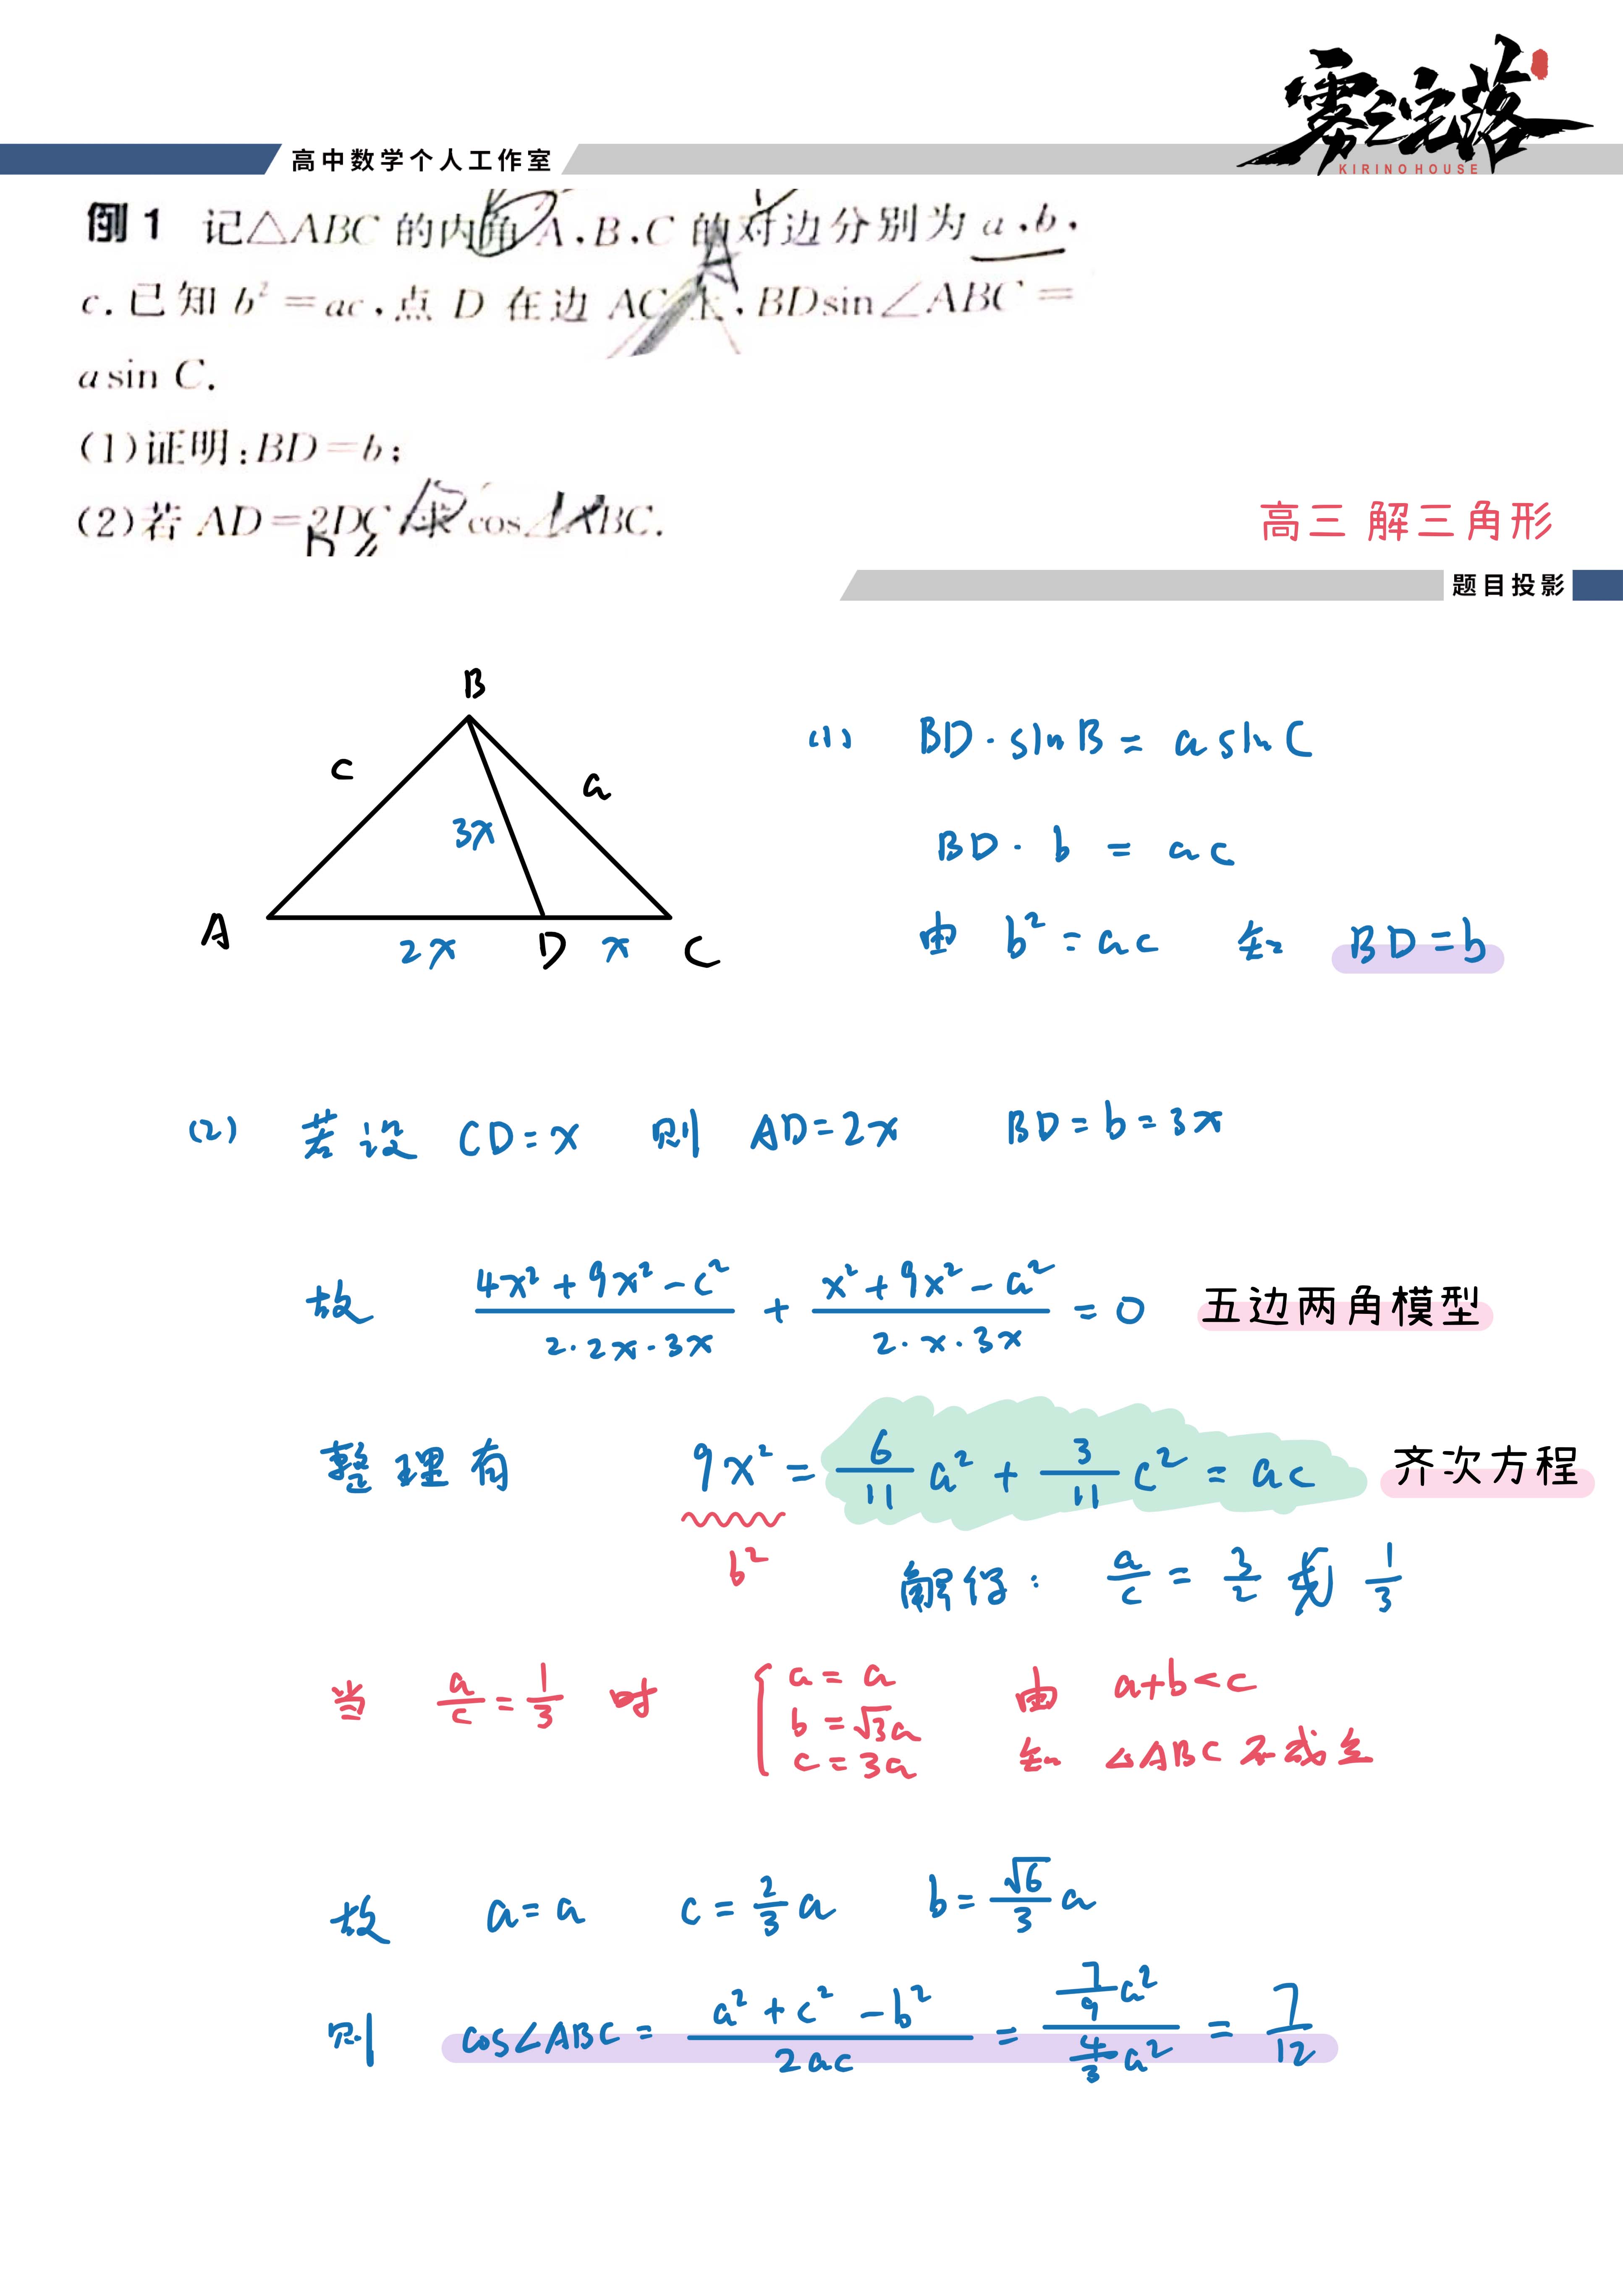 雾之宅落
KIRINO HOUSE
高中数学个人工作室
例1 记△ABC 的内角 A,B,C 的对边分别为 a,b,
c.已知 b²=ac,点 D 在边 AC 上,BDsin∠ABC=
asin C.
(1)证明:BD=b;
(2)若 AD=2DC,求 cos∠ABC.
高三 解三角形
题目投影
B
c
a
3x
A
2x
D
x
C
(1) BD·sinB = a sinC
BD·b = ac
由 b² = ac 知 BD = b
(2) 若设 CD = x 则 AD = 2x BD = b = 3x
故 (4x² + 9x² - c²)/(2·2x·3x) + (x² + 9x² - a²)/(2·x·3x) = 0 五边两角模型
整理有 9x² = 6/11 a² + 3/11 c² = ac 齐次方程
b²
解得: a/c = 3/2 或 1/3
当 a/c = 1/3 时 { a = a
b = √3a
c = 3a
由 a+b<c
知 △ABC 不成立
故 a = a c = 2/3 a b = √6/3 a
则 cos∠ABC = (a² + c² - b²)/(2ac) = (7/9 a²)/(4/3 a²) = 7/12